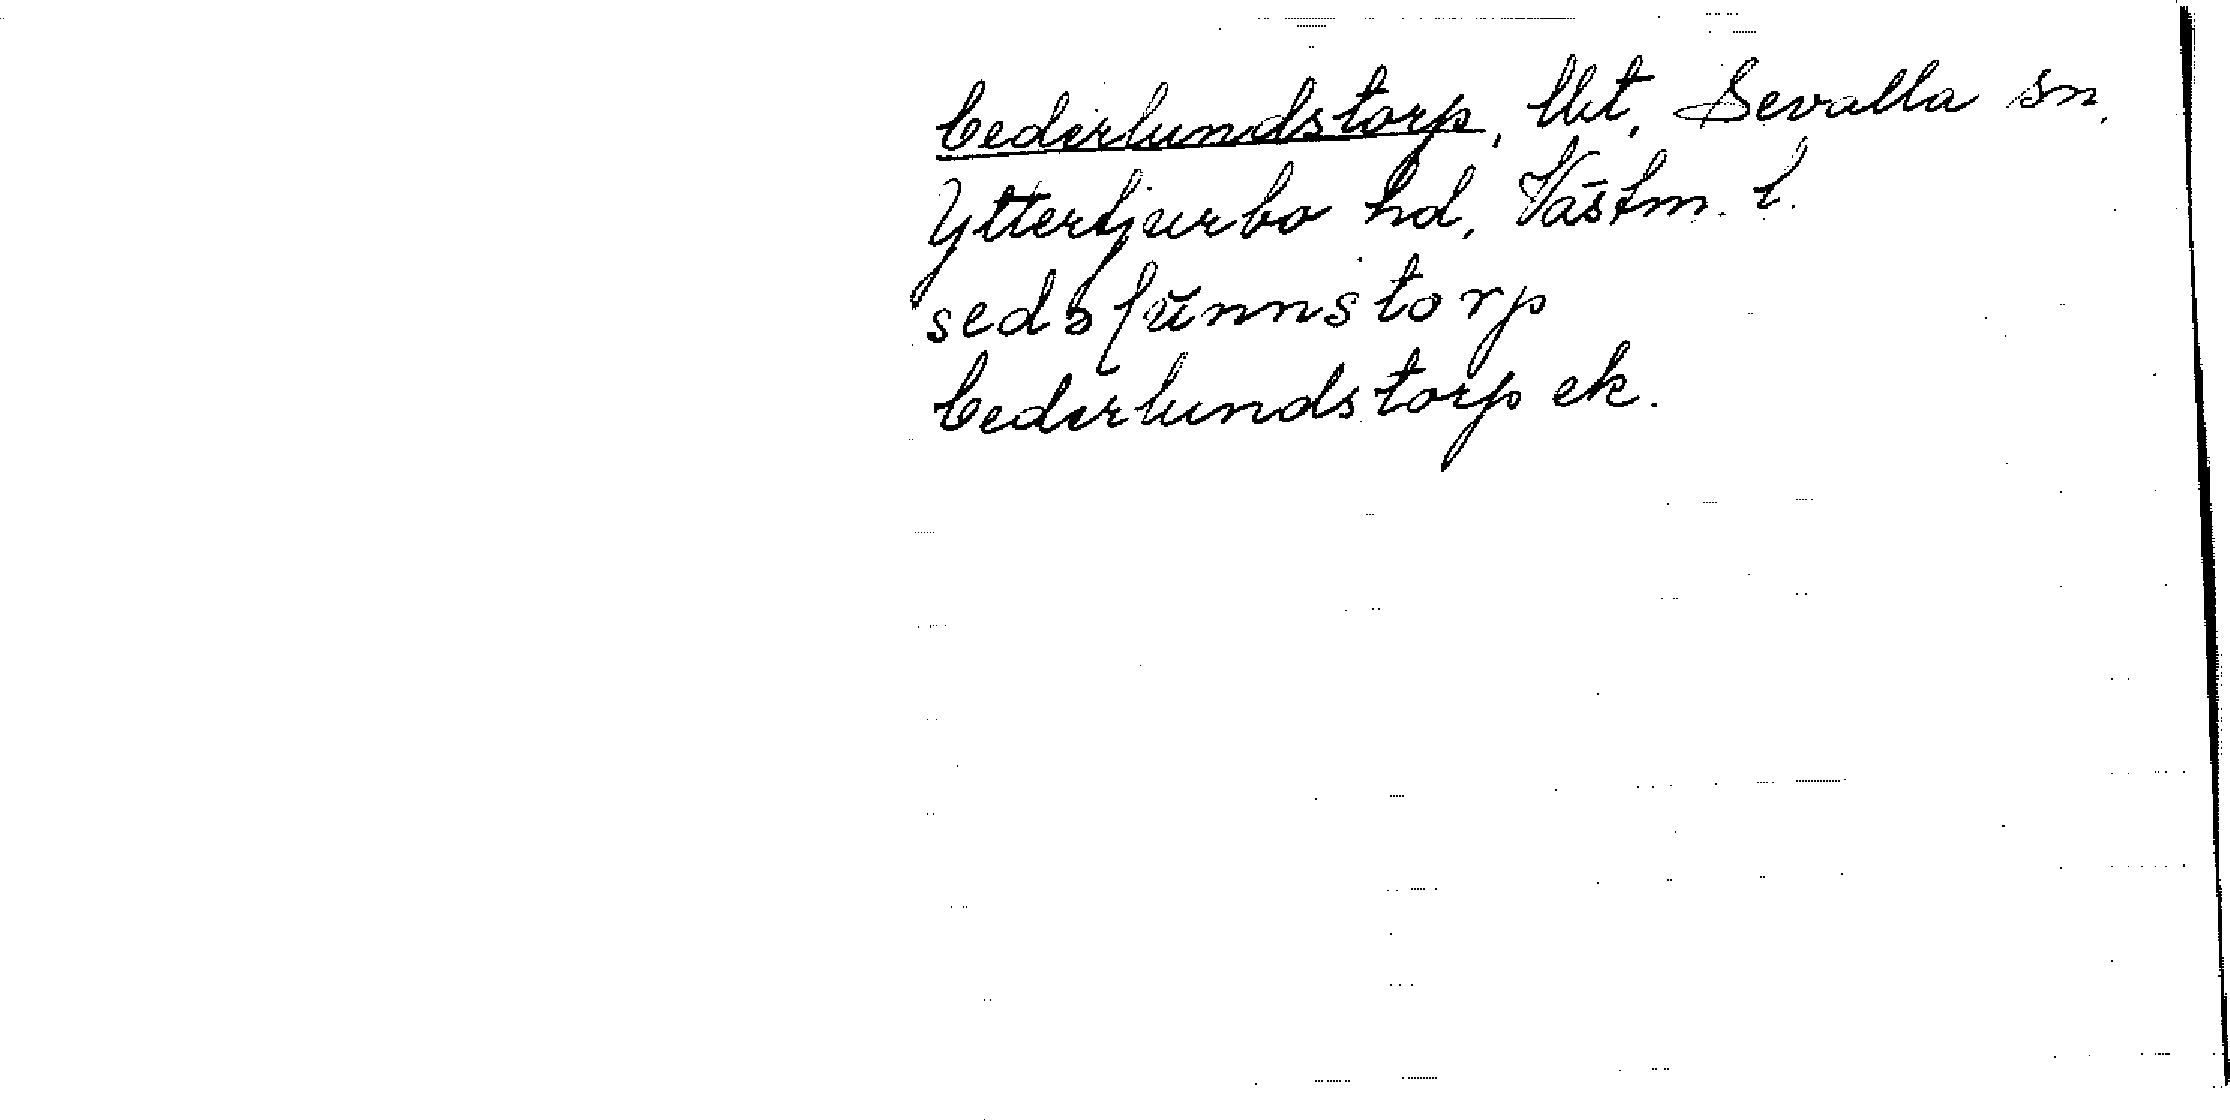 Cederlundstorp, lht, Sevalla sn,
Yttertjurbo hd, Västm. l.
sedəlunnstorp
Cederlundstorp ek.